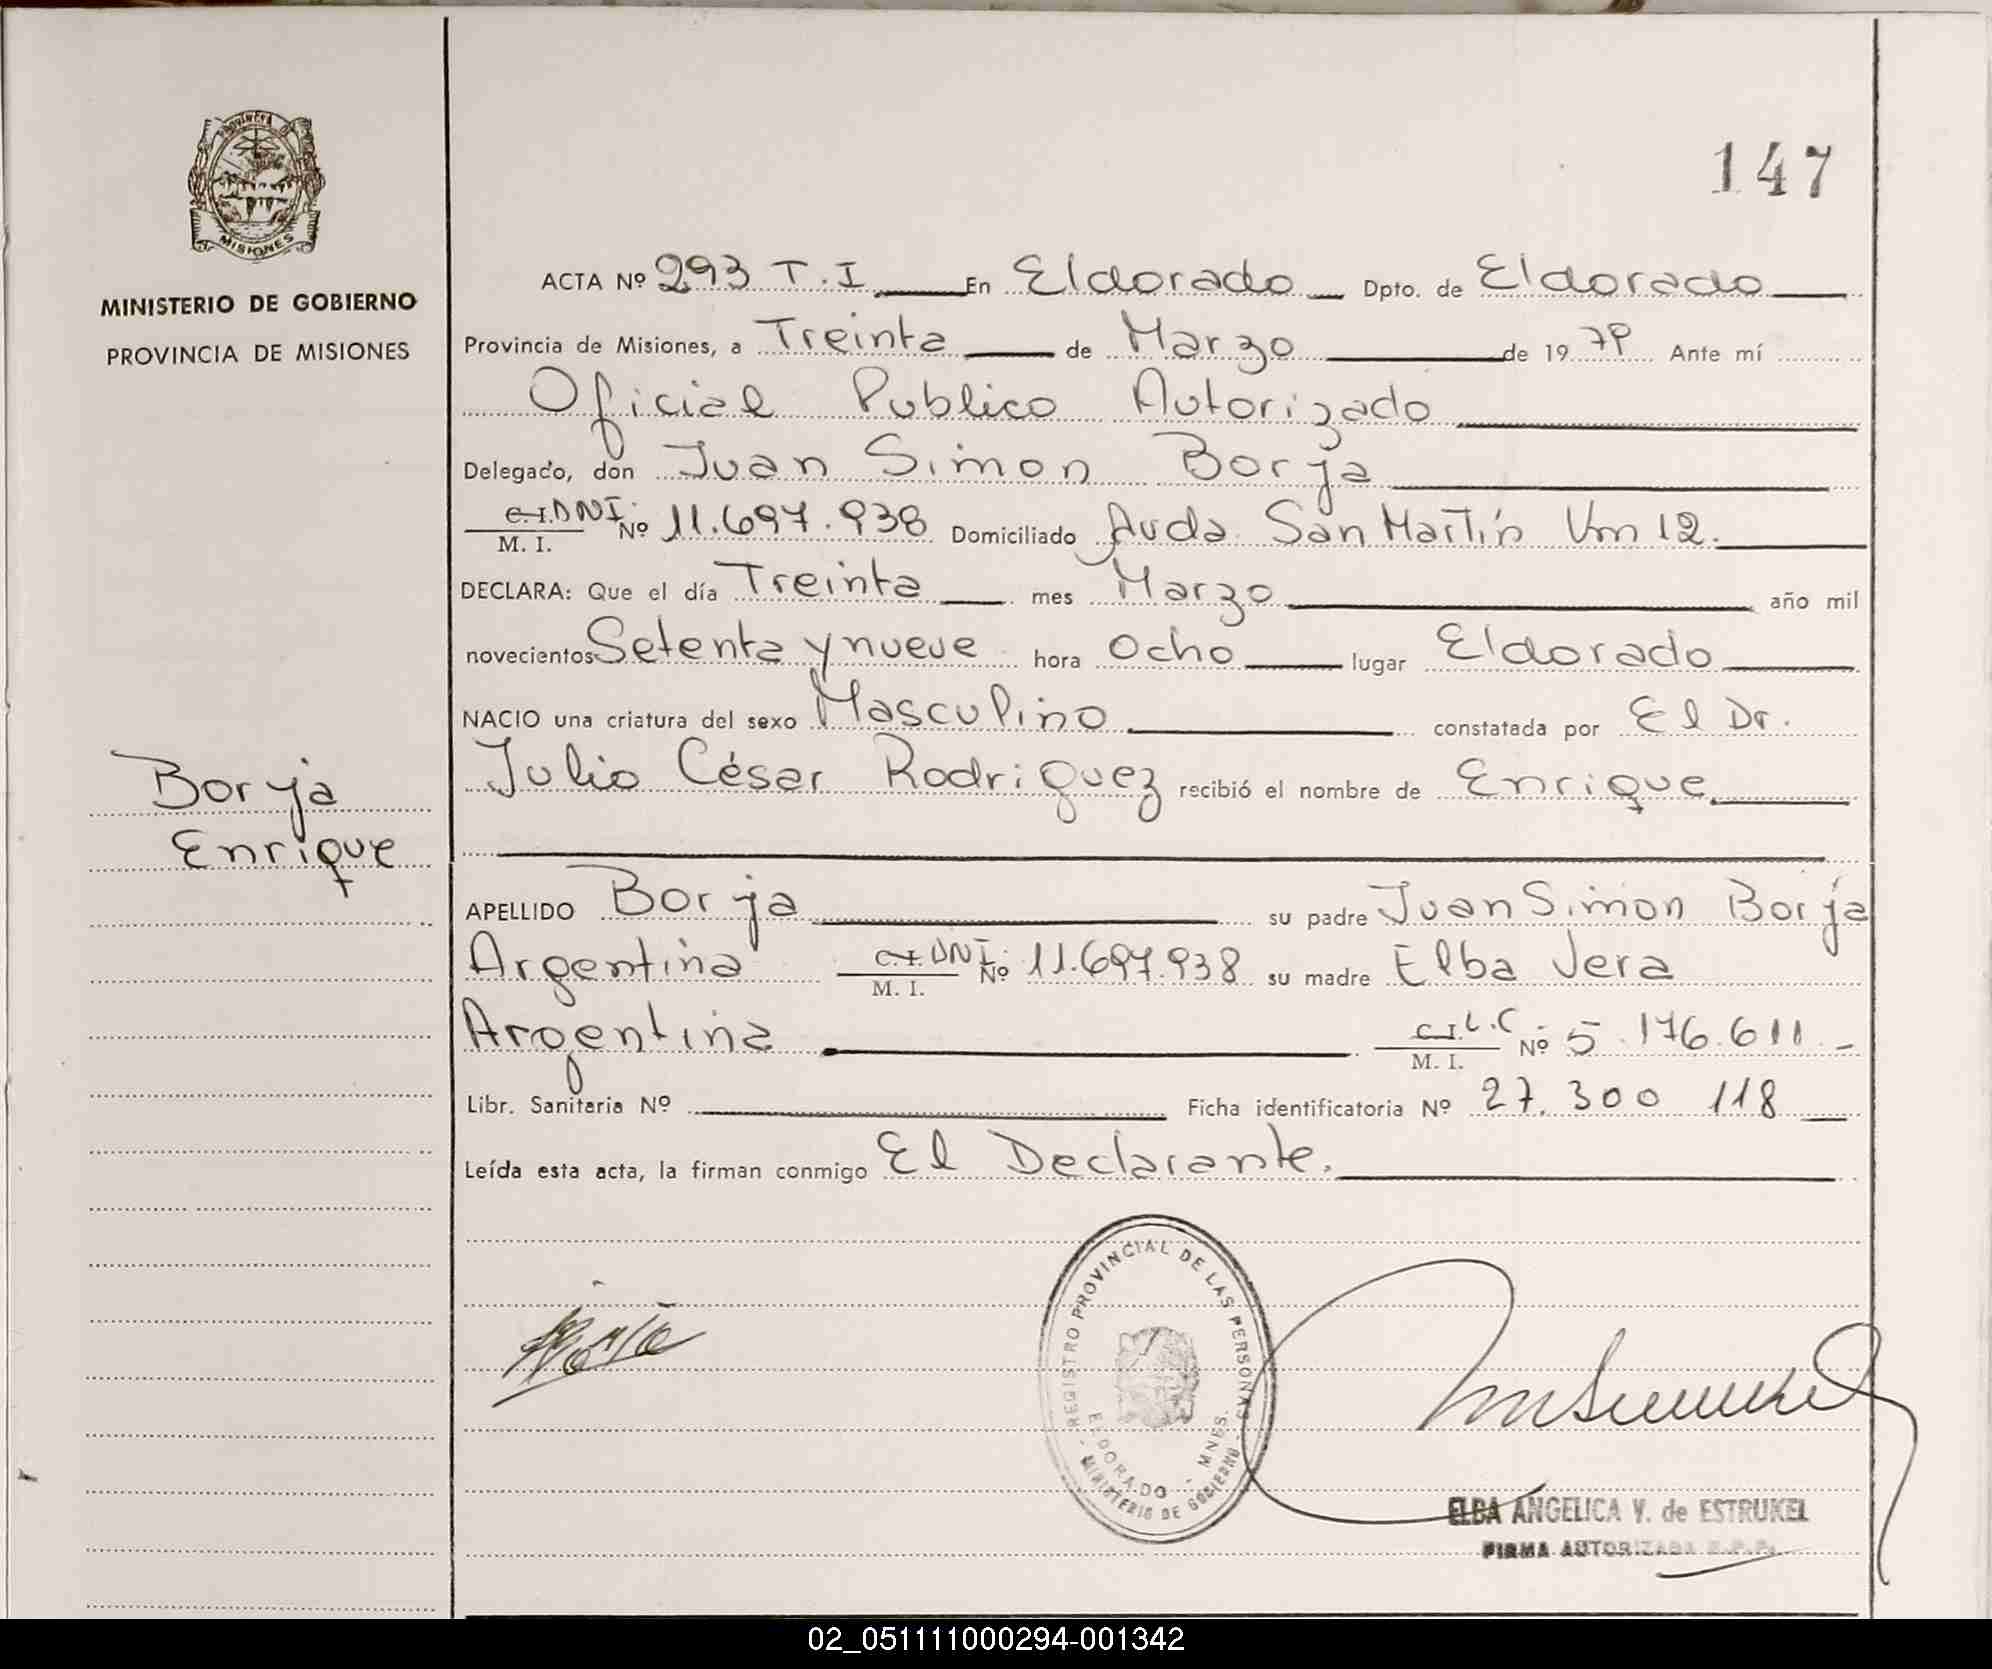 147
PROVINCIA DE
MISIONES
MINISTERIO DE GOBIERNO
PROVINCIA DE MISIONES
ACTA Nº 293 T.I En Eldorado Dpto. de Eldorado
Provincia de Misiones, a Treinta de Marzo de 1979 Ante mí
Oficial Publico Autorizado
Delegado, don Juan Simon Borja
C.I. DNI. Nº 11.697.938 Domiciliado Avda San Martín Km 12.
M. I.
DECLARA: Que el día Treinta mes Marzo año mil
novecientos Setenta y nueve hora Ocho lugar Eldorado
NACIO una criatura del sexo Masculino constatada por El Dr.
Julio César Rodriguez recibió el nombre de Enrique
Borja
Enrique
APELLIDO Borja su padre Juan Simon Borja
Argentina C.I. DNI. Nº 11.697.938 su madre Elba Vera
M. I.
Argentina C.I. L.C Nº 5.176.611.-
M. I.
Libr. Sanitaria Nº Ficha identificatoria Nº 27.300 118
Leída esta acta, la firman conmigo El Declarante.
REGISTRO PROVINCIAL DE LAS PERSONAS
ELDORADO - MNES.
- MINISTERIO DE GOBIERNO -
ELBA ANGELICA V. de ESTRUKEL
FIRMA AUTORIZADA R.P.P.
02_051111000294-001342